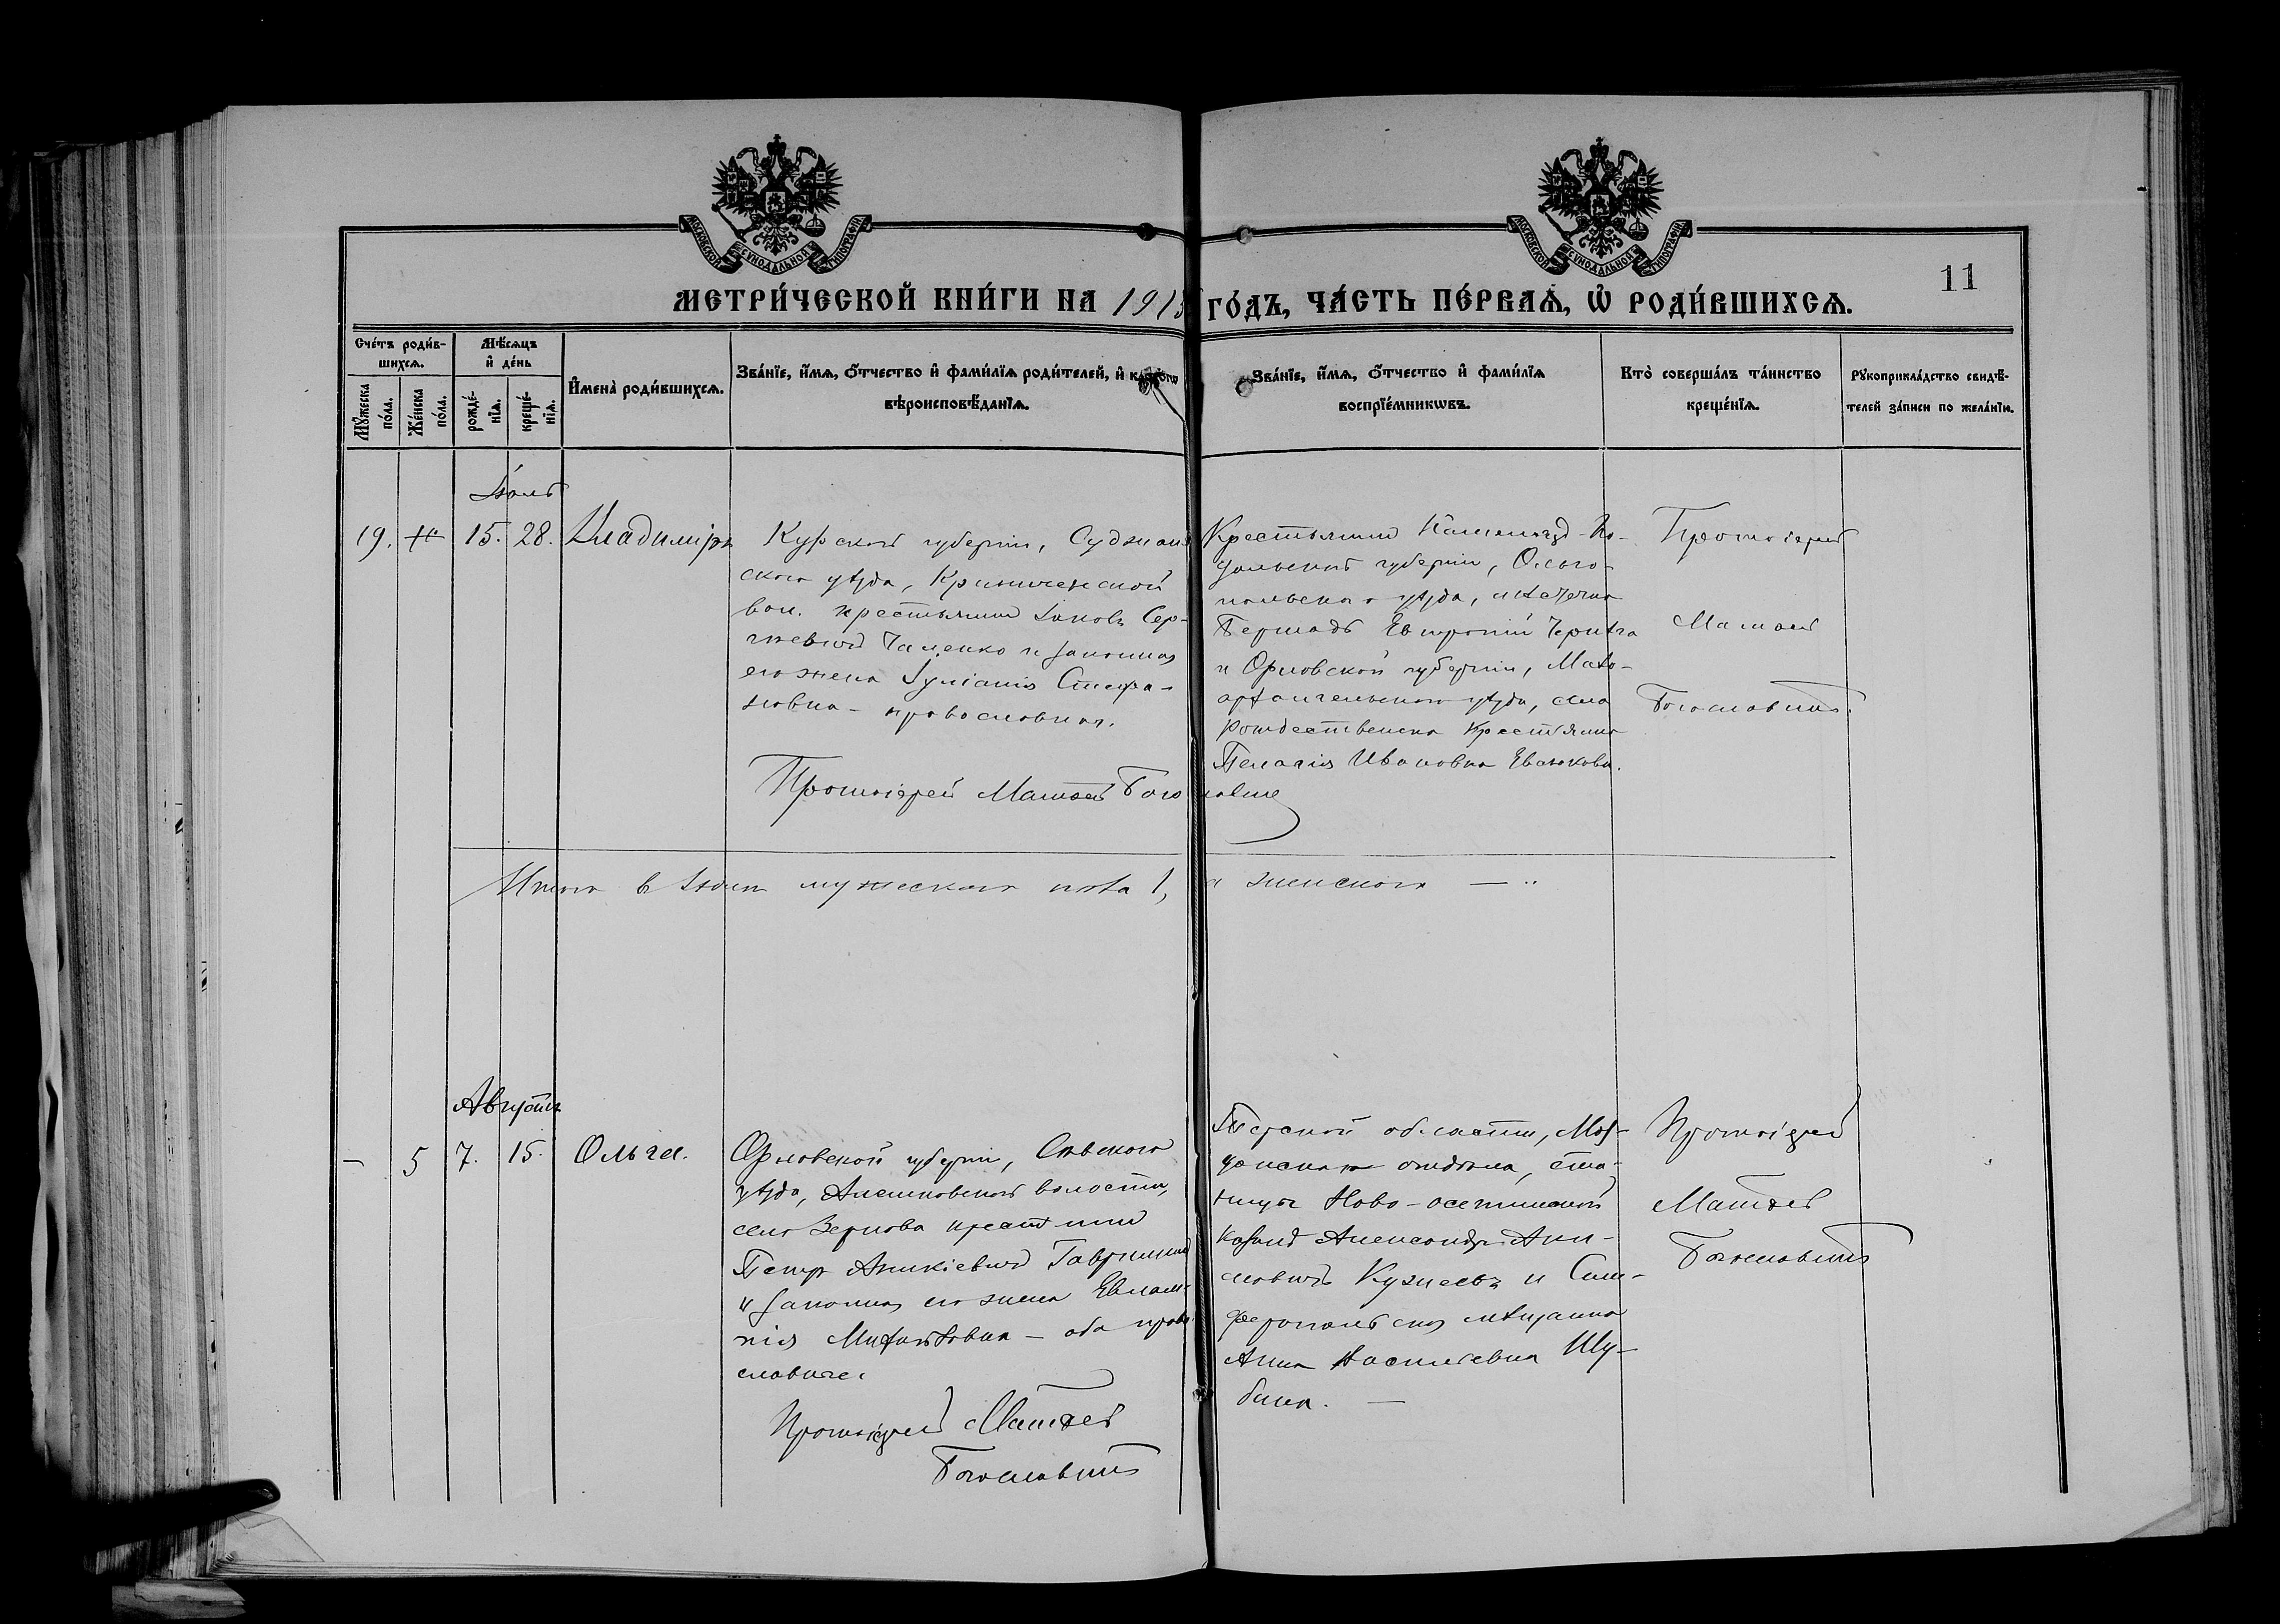 МОСКОВСКОЙ СѴНОДАЛЬНОЙ ТИПОГРАФІИ
МОСКОВСКОЙ СѴНОДАЛЬНОЙ ТИПОГРАФІИ
11
МЕТРИ́ЧЕСКОЙ КНИ́ГИ НА 1915 ГО́ДЪ, ЧА́СТЬ ПЕ́РВАѦ, Ѿ РОДИ́ВШИХСѦ.
Сче́тъ роди́в-
шихсѧ.
Мꙋ́жеска
по́ла.
Же́нска
по́ла.
Мѣ́сѧцъ
и҆ де́нь
рожде́-
нїѧ.
креще́-
нїѧ.
И҆мена̀ роди́вшихсѧ.
Зва́нїе, и҆́мѧ, ѻ҆́тчество и҆ фами́лїѧ роди́телей, и҆ како́гѡ
вѣроисповѣ́данїѧ.
Зва́нїе, и҆́мѧ, ѻ҆́тчество и҆ фами́лїѧ
воспрїе́мникѡвъ.
Кто̀ соверша́лъ та́инство
креще́нїѧ.
Рꙋкоприкла́дство свидѣ́-
телей за́писи по жела́нїю.
Іюль
19. 15. 28. Владиміръ
Курской губерніи, Суджан
скаго уѣзда, Криниченской
вол. крестьянинъ Іаковъ Сер-
гѣевичъ Чаленко и законная
его жена Іуліанія Стефа-
новна - православная.
Протоіерей Матѳей Богословскій
Крестьянинъ По-
дольской губерніи, Ольго-
польскаго уѣзда, мѣстечка
Бершадь Евтропій
и Орловской губерніи, Мало-
архангельскаго уѣзда, села
Рождественска крестьянка
Пелагія Ивановна Евсюкова.
Протоіерей
Матѳей
Богословскій.
Итого в Іюлѣ мужескаго пола 1, а женскаго — "
Августъ
- 5 7. 15. Ольга.
Орловской губерніи, Сѣвскаго
уѣзда, Алешковской волости,
села Зернова крестьянинъ
Петръ Аникіевичъ Гаврилинъ
и законная его жена Евлам-
пія Михайловна - оба право
славные.
Протоіерей Матѳей
Богословскій
Терской области, Моз-
докскаго отдѣла, ста-
ницы Ново-осетинской
казакъ Александръ
Кузнецовъ и Сим-
феропольская мѣщанка
Анна Васильевна Шу-
бина. —
Протоіерей
Матѳей
Богословскій